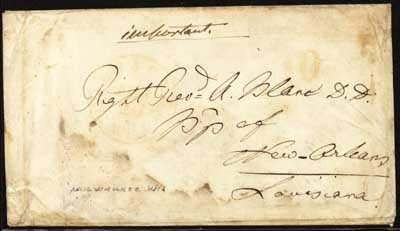 important.
Right Revd. A. Blanc D.D.
Bp of
New-Orleans
Louisiana.
MILWAUKEE WIS